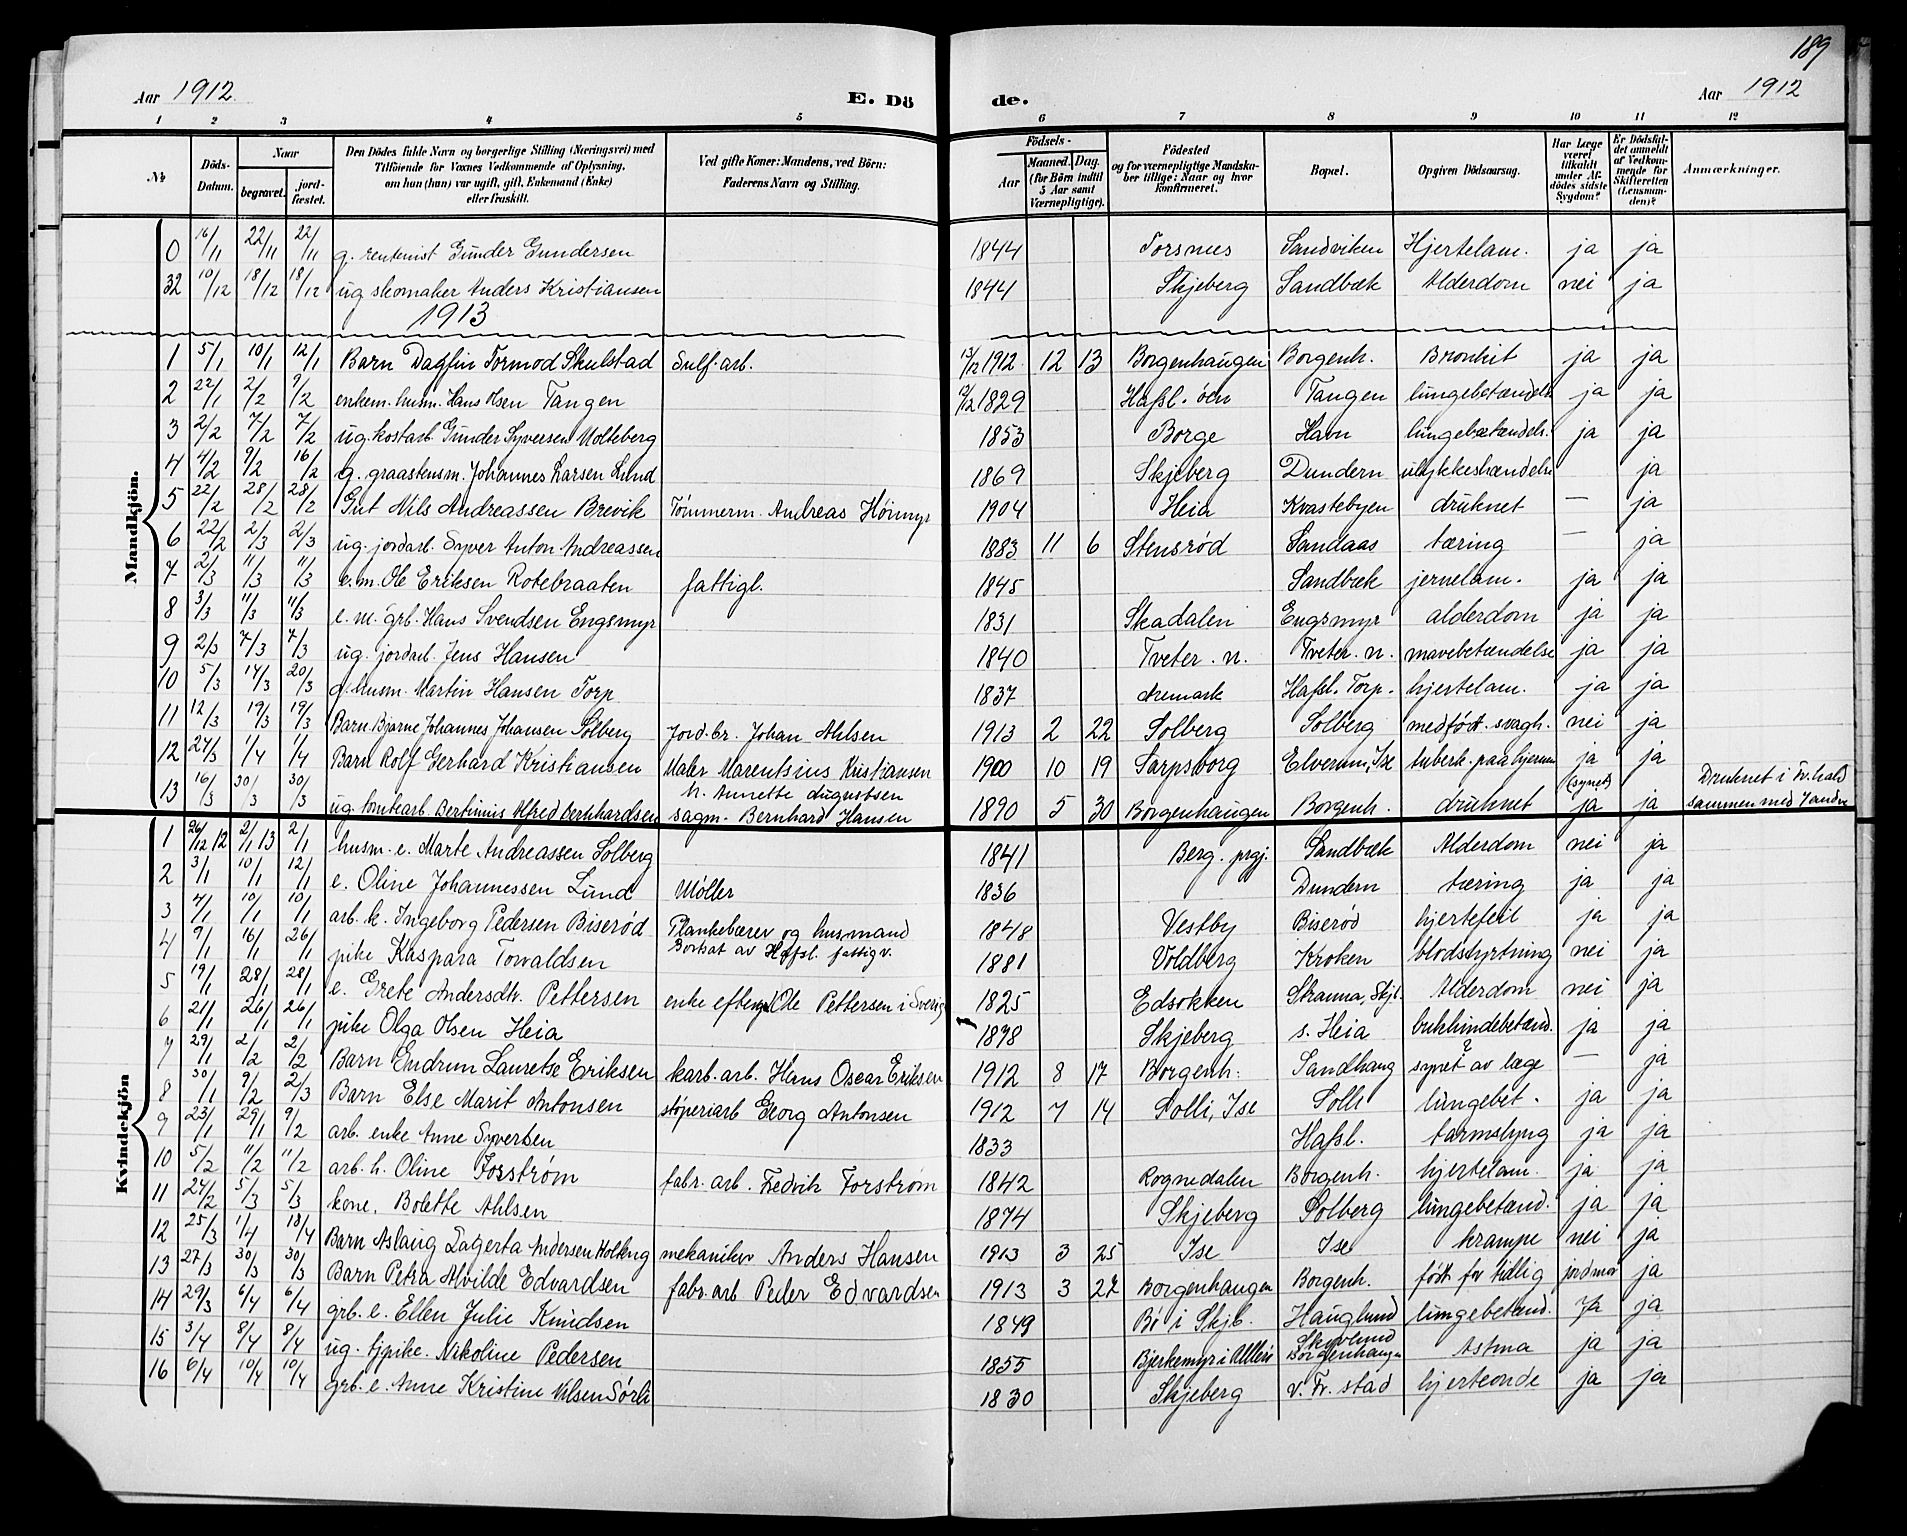 189
Aar 1912. E. Dö de. Aar 1912
1 2 3 4 5 6 7 8 9 10 11 12
№ Döds-Datum. Naar begravet. jordfæstet. Den Dödes fulde Navn og borgerlige Stilling (Næringsvei) med Tilföiende for Voxnes Vedkommende af Oplysning, om hun (han) var ugift, gift, Enkemand (Enke) eller fraskilt. Ved gifte Koner: Mandens, ved Börn: Faderens Navn og Stilling. Födsels- Aar Maaned. Dag. (for Börn indtil 5 Aar samt Værnepligtige). Födested og for værnepligtige Mandskaber tillige: Naar og hvor konfirmeret. Bopæl. Opgiven Dödsaarsag. Har Læge været tilkaldt under Afdödes sidste Sygdom? Er Dödsfaldet anmeldt af Vedkommende for Skifteretten (Lensmanden)? Anmærkninger.
Mandkjön.
0 16/11 22/11 22/11 g. rentenist Gunder Gundersen 1844 Torsnes Sandviken Hjertelam. ja ja
32 10/12 18/12 18/12 ug skomaker Anders Kristiansen 1844 Skjeberg Sandbæk Alderdom nei ja
1913
1 5/1 10/1 12/1 Barn Dagfin Tormod Skulstad Sulf. arb. 13/12 1912 12 13 Borgenhaugen Borgenh. Bronkit ja ja
2 22/1 2/2 9/2 enkem. husm. Hans Olsen Tangen 1829 Hafsl. öen Tangen lungebetændels ja ja
3 2/2 7/2 7/2 ug. kostarb. Gunder Syversen Molteberg 1853 Borge Havn lungebetændels. ja ja
4 4/2 9/2 16/2 g. graastensm. Johannes Larsen Lund 1869 Skjeberg Dundern ulykkeshændelse ja
5 22/2 28/2 28/2 Gut Nils Andreassen Brevik Tömmerm. Andreas Hönmyr 1904 Heia Kvastebyen druknet — ja
6 22/2 2/3 2/3 ug. jordarb. Syver Anton Andreassen 1883 11 6 Stensrød Sandaas tæring — ja
7 2/3 11/3 11/3 e. m. Ole Eriksen Rotebraaten fattigl. 1845 Sandbæk jernelam. ja ja
8 3/3 11/3 11/3 e. m. grb. Hans Svendsen Engsmyr 1831 Skadalen Engsmyr alderdom ja ja
9 2/3 7/3 7/3 ug. jordarb. Jens Hansen 1840 Tveter. n. Tveter. n. mavebetændelse ja ja
10 5/3 14/3 20/3 g. husm. Martin Hansen Torp 1837 Aremark Hafsl. Torp. hjertelam. ja ja
11 12/3 19/3 19/3 Barn Bjarne Johannes Johansen Solberg Jord. br. Johan Ahlsen 1913 2 22 Solberg Solberg medfödt. svagh. nei ja
12 24/3 1/4 1/4 Barn Rolf Gerhard Kristiansen Maler Marentsius Kristiansen 1900 10 19 Sarpsborg Elverum, Ise tuberk. paa hjernen ja ja
h. Annette Augustsen (synet) Druknet i Fr.hald
13 16/3 30/3 30/3 ug. tomtearb. Bertinius Alfred Bernhardsen sagm. Bernhard Hansen 1890 5 30 Borgenhaugen Borgenh. druknet ja ja sammen med 7 andre
Kvindekjön
1 26/12 12 2/1 13 2/1 husm. e. Marte Andreassen Solberg 1841 Berg. prgj. Sandbæk Alderdom nei ja
2 3/1 10/1 12/1 e. Oline Johannessen Lund Møller 1836 Dundern tæring ja ja
3 4/1 10/1 10/1 arb. k. Ingeborg Pedersen Biserød Plankebærer og husmand 1848 Vestby Biserød hjertefeil ja ja
4 9/1 16/1 26/1 pike Kaspara Torvaldsen Bortsat av Hafsl. fattigv. 1881 Voldberg Kroken blodstyrtning nei ja
5 19/1 28/1 28/1 e. Grete Andersdtr. Pettersen enke efter Ole Pettersen i Sverig 1825 Edsökken Stranna, Skjb. Alderdom nei ja
6 21/1 26/1 26/1 pike Olga Olsen Heia 1898 Skjeberg s. Heia bukhindebetænd. ja ja
7 29/1 2/2 2/2 Barn Gudrun Lauretse Eriksen karb. arb. Hans Oscar Eriksen 1912 8 17 Borgenh: Sandhaug ? synet av læge — ja
8 30/1 9/2 2/3 Barn Else Marit Antonsen støperiarb Georg Antonsen 1912 7 14 Solli, Ise Solli lungebet. ja ja
9 23/1 29/1 9/2 arb. enke Anne Syversen 1833 Hafsl. tarmslyng ja ja
10 5/2 11/2 11/2 arb. h. Oline Forstrøm fabr. arb. Fredrik Forstrøm 1842 Rognedalen Borgenh. hjertelam. ja ja
11 24/2 5/3 5/3 kone. Bolette Ahlsen 1874 Skjeberg Solberg lungebetænd. ja ja
12 25/3 1/4 18/4 Barn Aslaug Lagerta Andersen Holteng mekaniker Anders Hansen 1913 3 25 Ise Ise krampe nei ja
13 27/3 30/3 30/3 Barn Petra Alvilde Edvardsen fabr. arb Peder Edvardsen 1913 3 27 Borgenhaugen Borgenh. födt for tidlig jordmor ja
14 29/3 6/4 6/4 grb. e. Ellen Julie Knudsen 1849 Bø i Skjb. Hauglund lungebetænd. Ja ja
15 3/4 8/4 8/4 ug. tjpike. Nikoline Pedersen 1855 Bjerkemyr i Ullerö Skovlund Borgenhaugen Astma ja ja
16 6/4 10/4 10/4 grb. e. Anne Kristine Nilsen Sørli 1830 Skjeberg v. Fr. stad hjerteonde ja ja